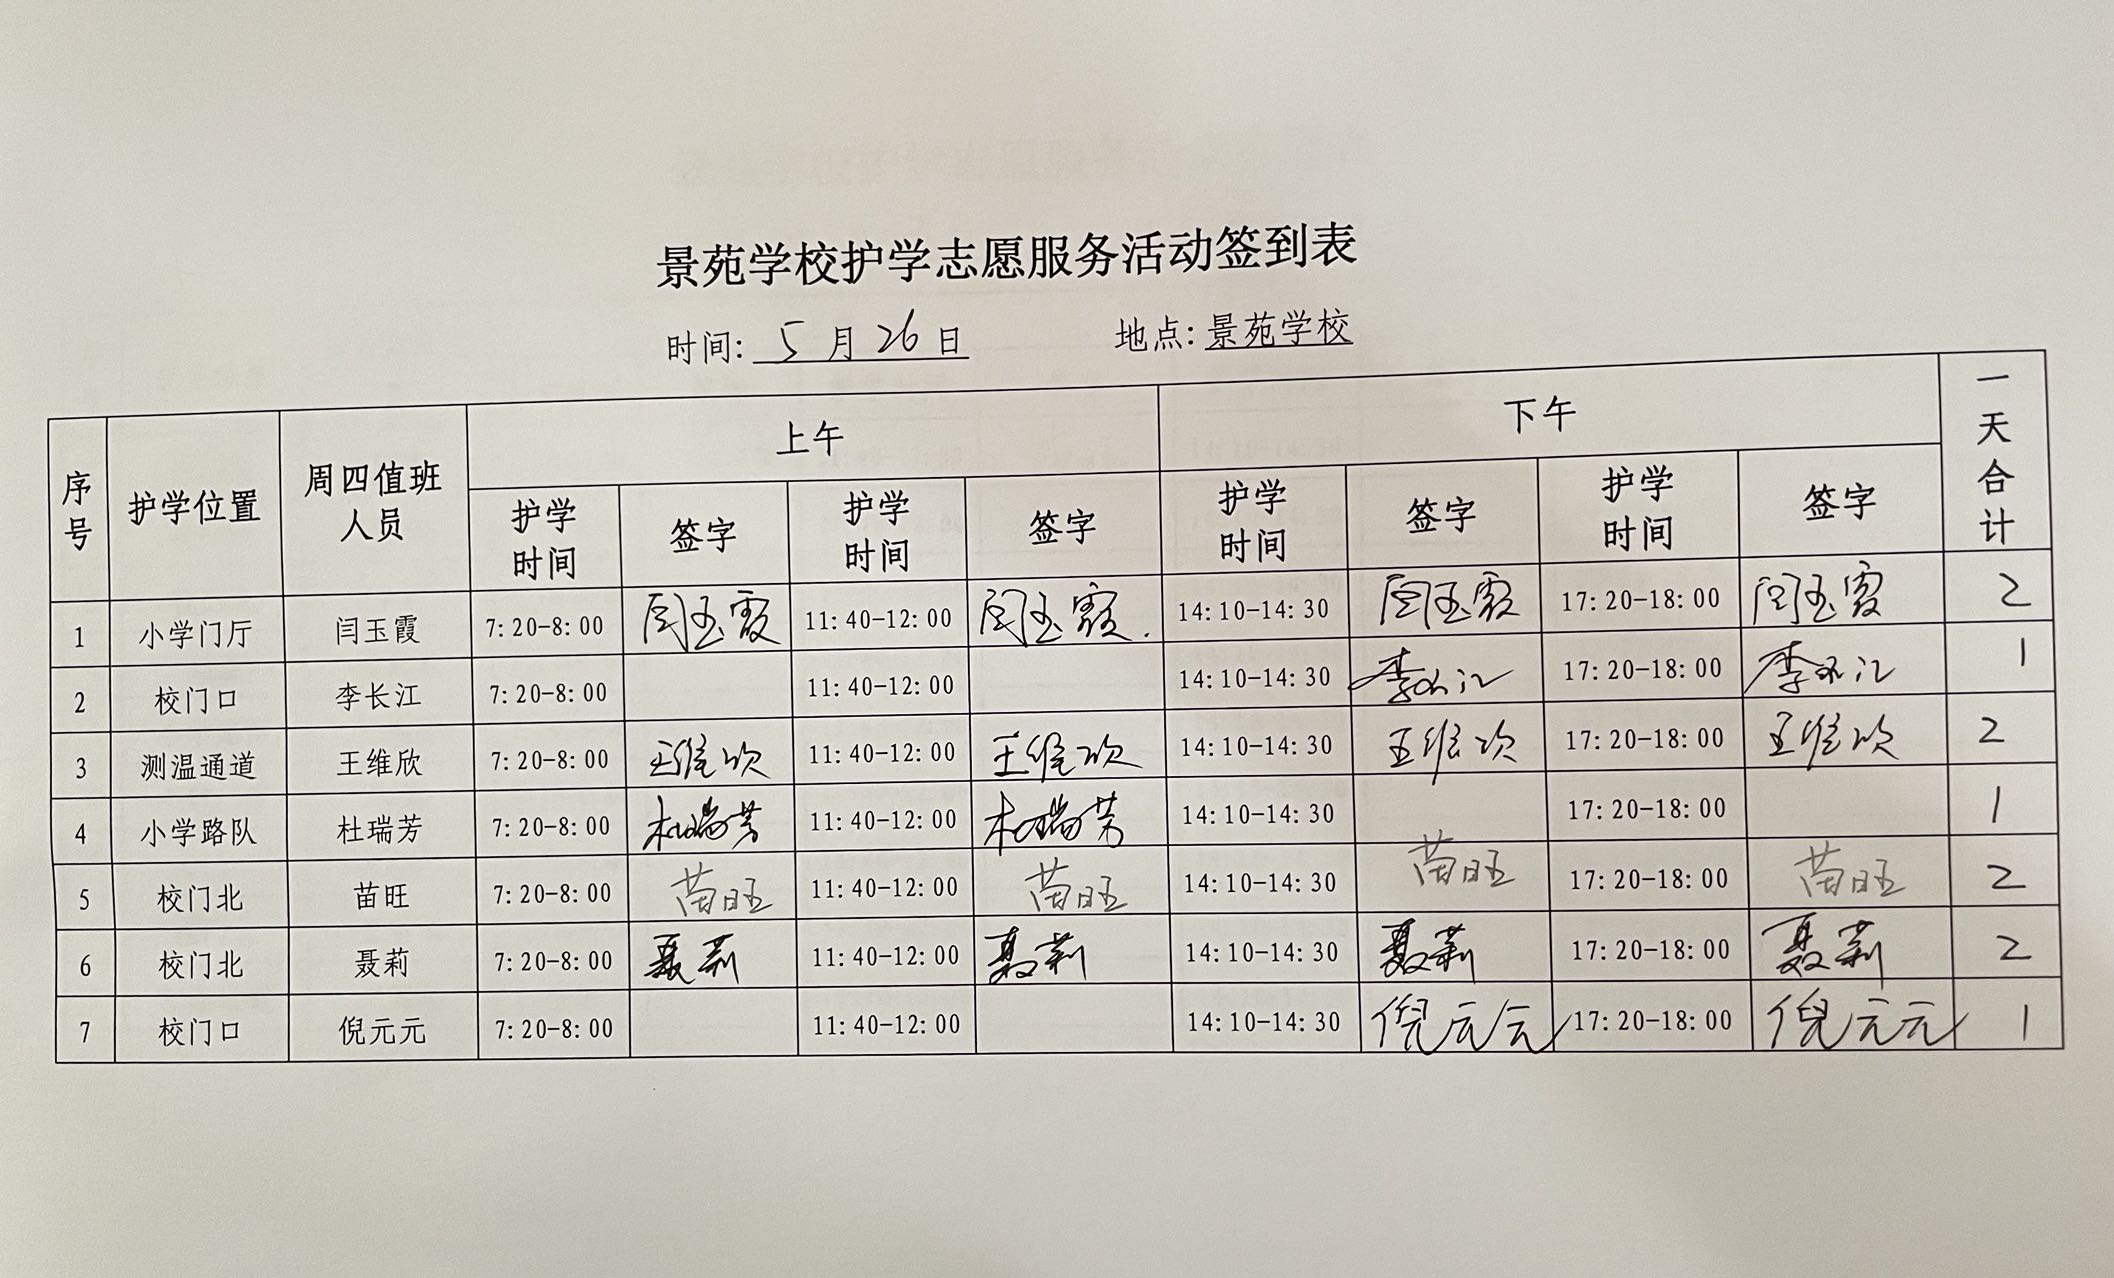 景苑学校护学志愿服务活动签到表
时间: 5月26日 地点: 景苑学校
序号 护学位置 周四值班人员 上午 下午 一天合计
护学时间 签字 护学时间 签字 护学时间 签字 护学时间 签字
1 小学门厅 闫玉霞 7:20-8:00 闫玉霞 11:40-12:00 闫玉霞. 14:10-14:30 闫玉霞 17:20-18:00 闫玉霞 2
2 校门口 李长江 7:20-8:00 11:40-12:00 14:10-14:30 李长江 17:20-18:00 李长江 1
3 测温通道 王维欣 7:20-8:00 王维欣 11:40-12:00 王维欣 14:10-14:30 王维欣 17:20-18:00 王维欣 2
4 小学路队 杜瑞芳 7:20-8:00 杜瑞芳 11:40-12:00 杜瑞芳 14:10-14:30 17:20-18:00 1
5 校门北 苗旺 7:20-8:00 苗旺 11:40-12:00 苗旺 14:10-14:30 苗旺 17:20-18:00 苗旺 2
6 校门北 聂莉 7:20-8:00 聂莉 11:40-12:00 聂莉 14:10-14:30 聂莉 17:20-18:00 聂莉 2
7 校门口 倪元元 7:20-8:00 11:40-12:00 14:10-14:30 倪元元 17:20-18:00 倪元元 1